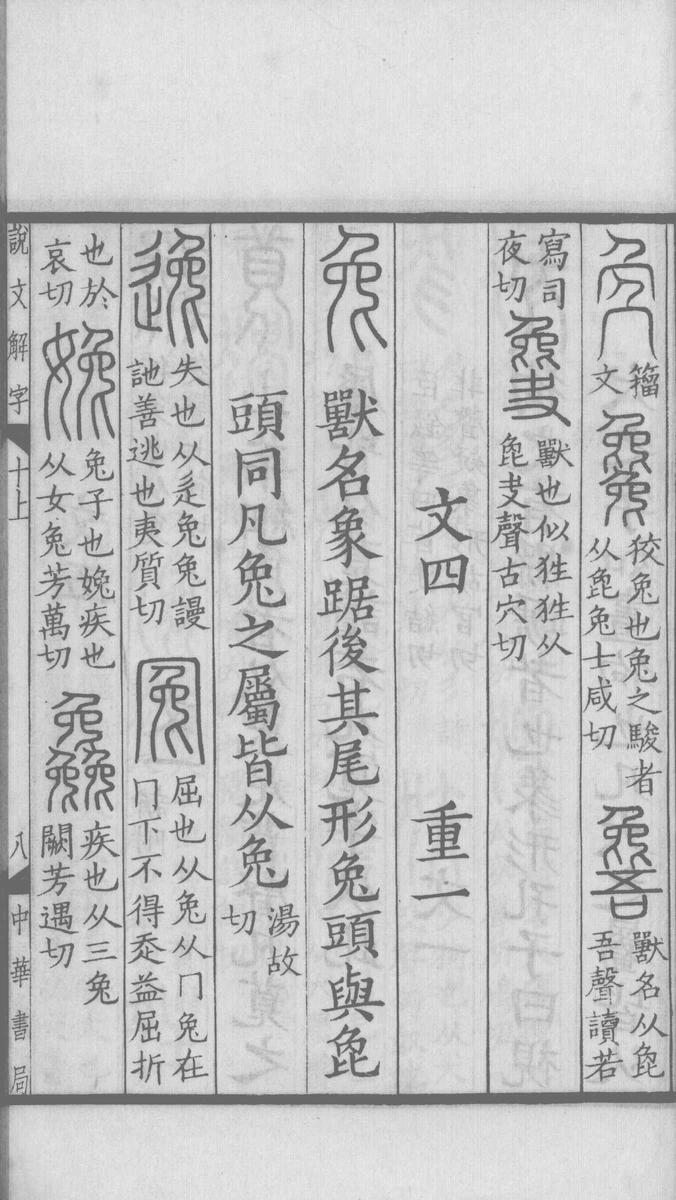 籒
文
狡兔也兔之駿者
从㲋兔士咸切
獸名从㲋
吾聲讀若
寫司
夜切
獸也似狌狌从
㲋夬聲古穴切
文四 重一
兔 獸名象踞後其尾形兔頭與㲋
頭同凡兔之屬皆从兔
湯故
切
逸
失也从辵兔兔謾
訑善逃也夷質切
冤
屈也从兔从冂兔在
冂下不得走益屈折
也於
袁切
娩
兔子也娩疾也
从女兔芳萬切
疾也从三兔
闕芳遇切
說文解字 十上 八 中華書局